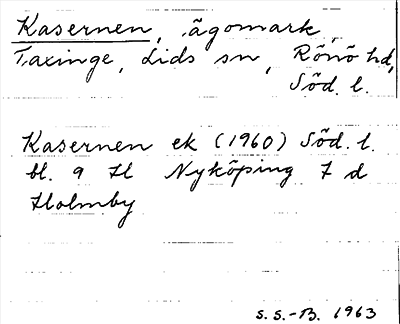 Kasernen, ägomark,
Taxinge, Lids sn, Rönö hd,
Söd. l.
Kasernen ek (1960) Söd. l.
bl. 9 H Nyköping 7 d
Holmby
S.S.-B. 1963